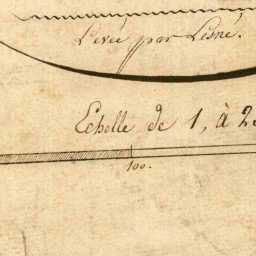 Levée par Lesné.
Echelle de 1, à 2
100.